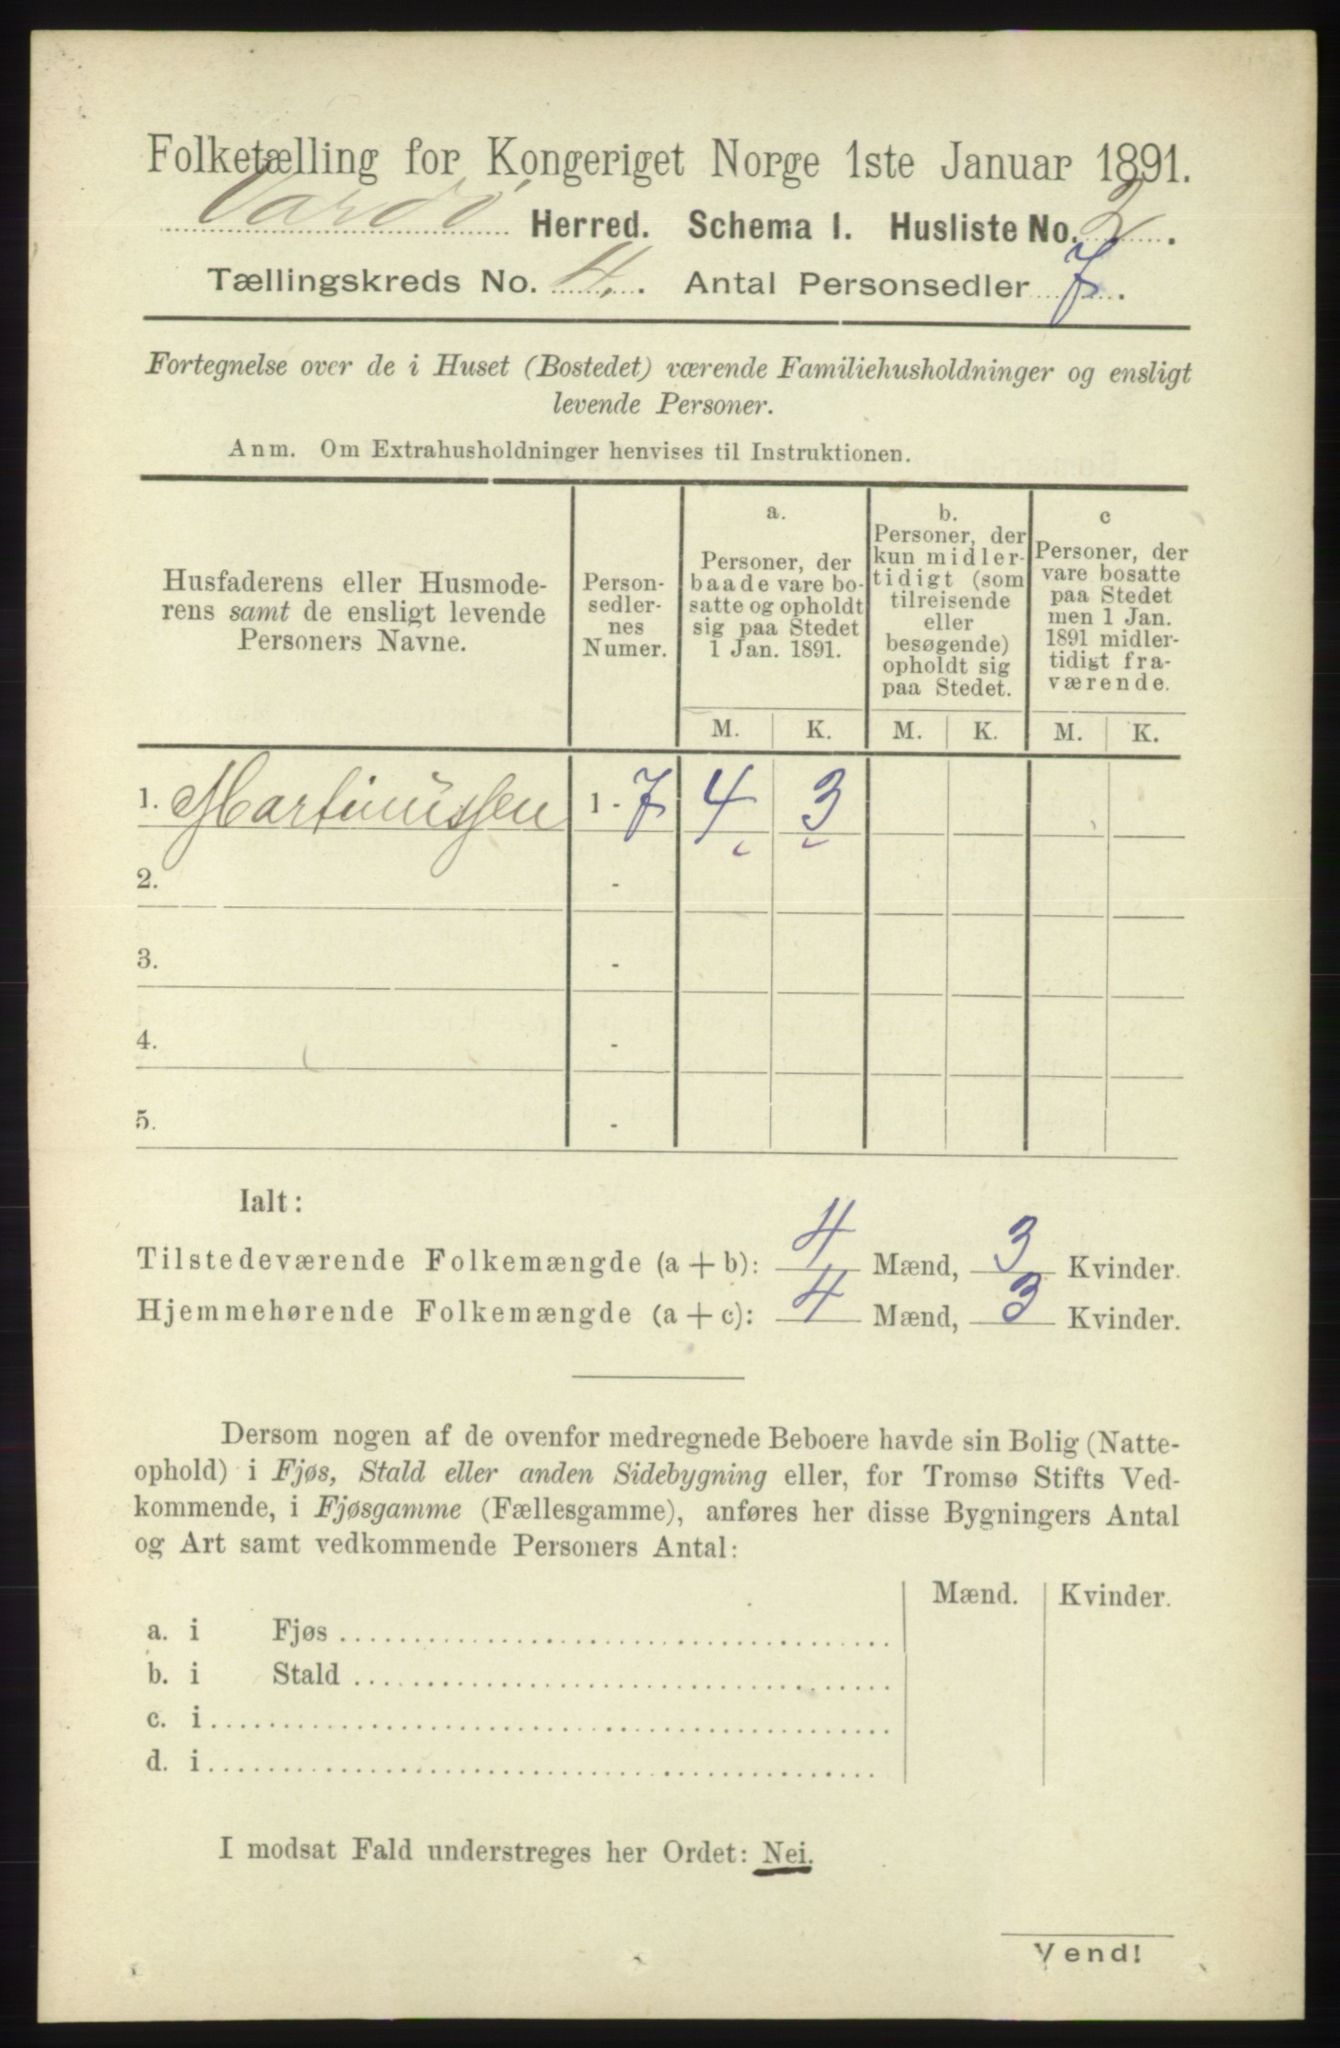 Folketælling for Kongeriget Norge 1ste Januar 1891.
Vardö Herred. Schema I. Husliste No. 2.
Tællingskreds No. 4. Antal Personsedler 7.
Fortegnelse over de i Huset (Bostedet) værende Familiehusholdninger og ensligt
levende Personer.
Anm. Om Extrahusholdninger henvises til Instruktionen.
Husfaderens eller Husmode-
rens samt de ensligt levende
Personers Navne.
Person-
sedler-
nes
Numer.
a.
Personer, der
baade vare bo-
satte og opholdt
sig paa Stedet
1 Jan. 1891.
b.
Personer, der
kun midler-
tidigt (som
tilreisende
eller
besøgende)
opholdt sig
paa Stedet.
c
Personer, der
vare bosatte
paa Stedet
men 1 Jan.
1891 midler-
tidigt fra-
værende.
M. K. M. K. M. K.
1. Martinussen 1 - 7 4 3
2. -
3. -
4. -
5. -
Ialt:
Tilstedeværende Folkemængde (a + b): 4 Mænd, 3 Kvinder.
Hjemmehørende Folkemængde (a + c): 4 Mænd, 3 Kvinder.
Dersom nogen af de ovenfor medregnede Beboere havde sin Bolig (Natte-
ophold) i Fjøs, Stald eller anden Sidebygning eller, for Tromsø Stifts Ved-
kommende, i Fjøsgamme (Fællesgamme), anføres her disse Bygningers Antal
og Art samt vedkommende Personers Antal:
Mænd. Kvinder.
a. i Fjøs
b. i Stald
c. i
d. i
I modsat Fald understreges her Ordet: Nei.
Vend!